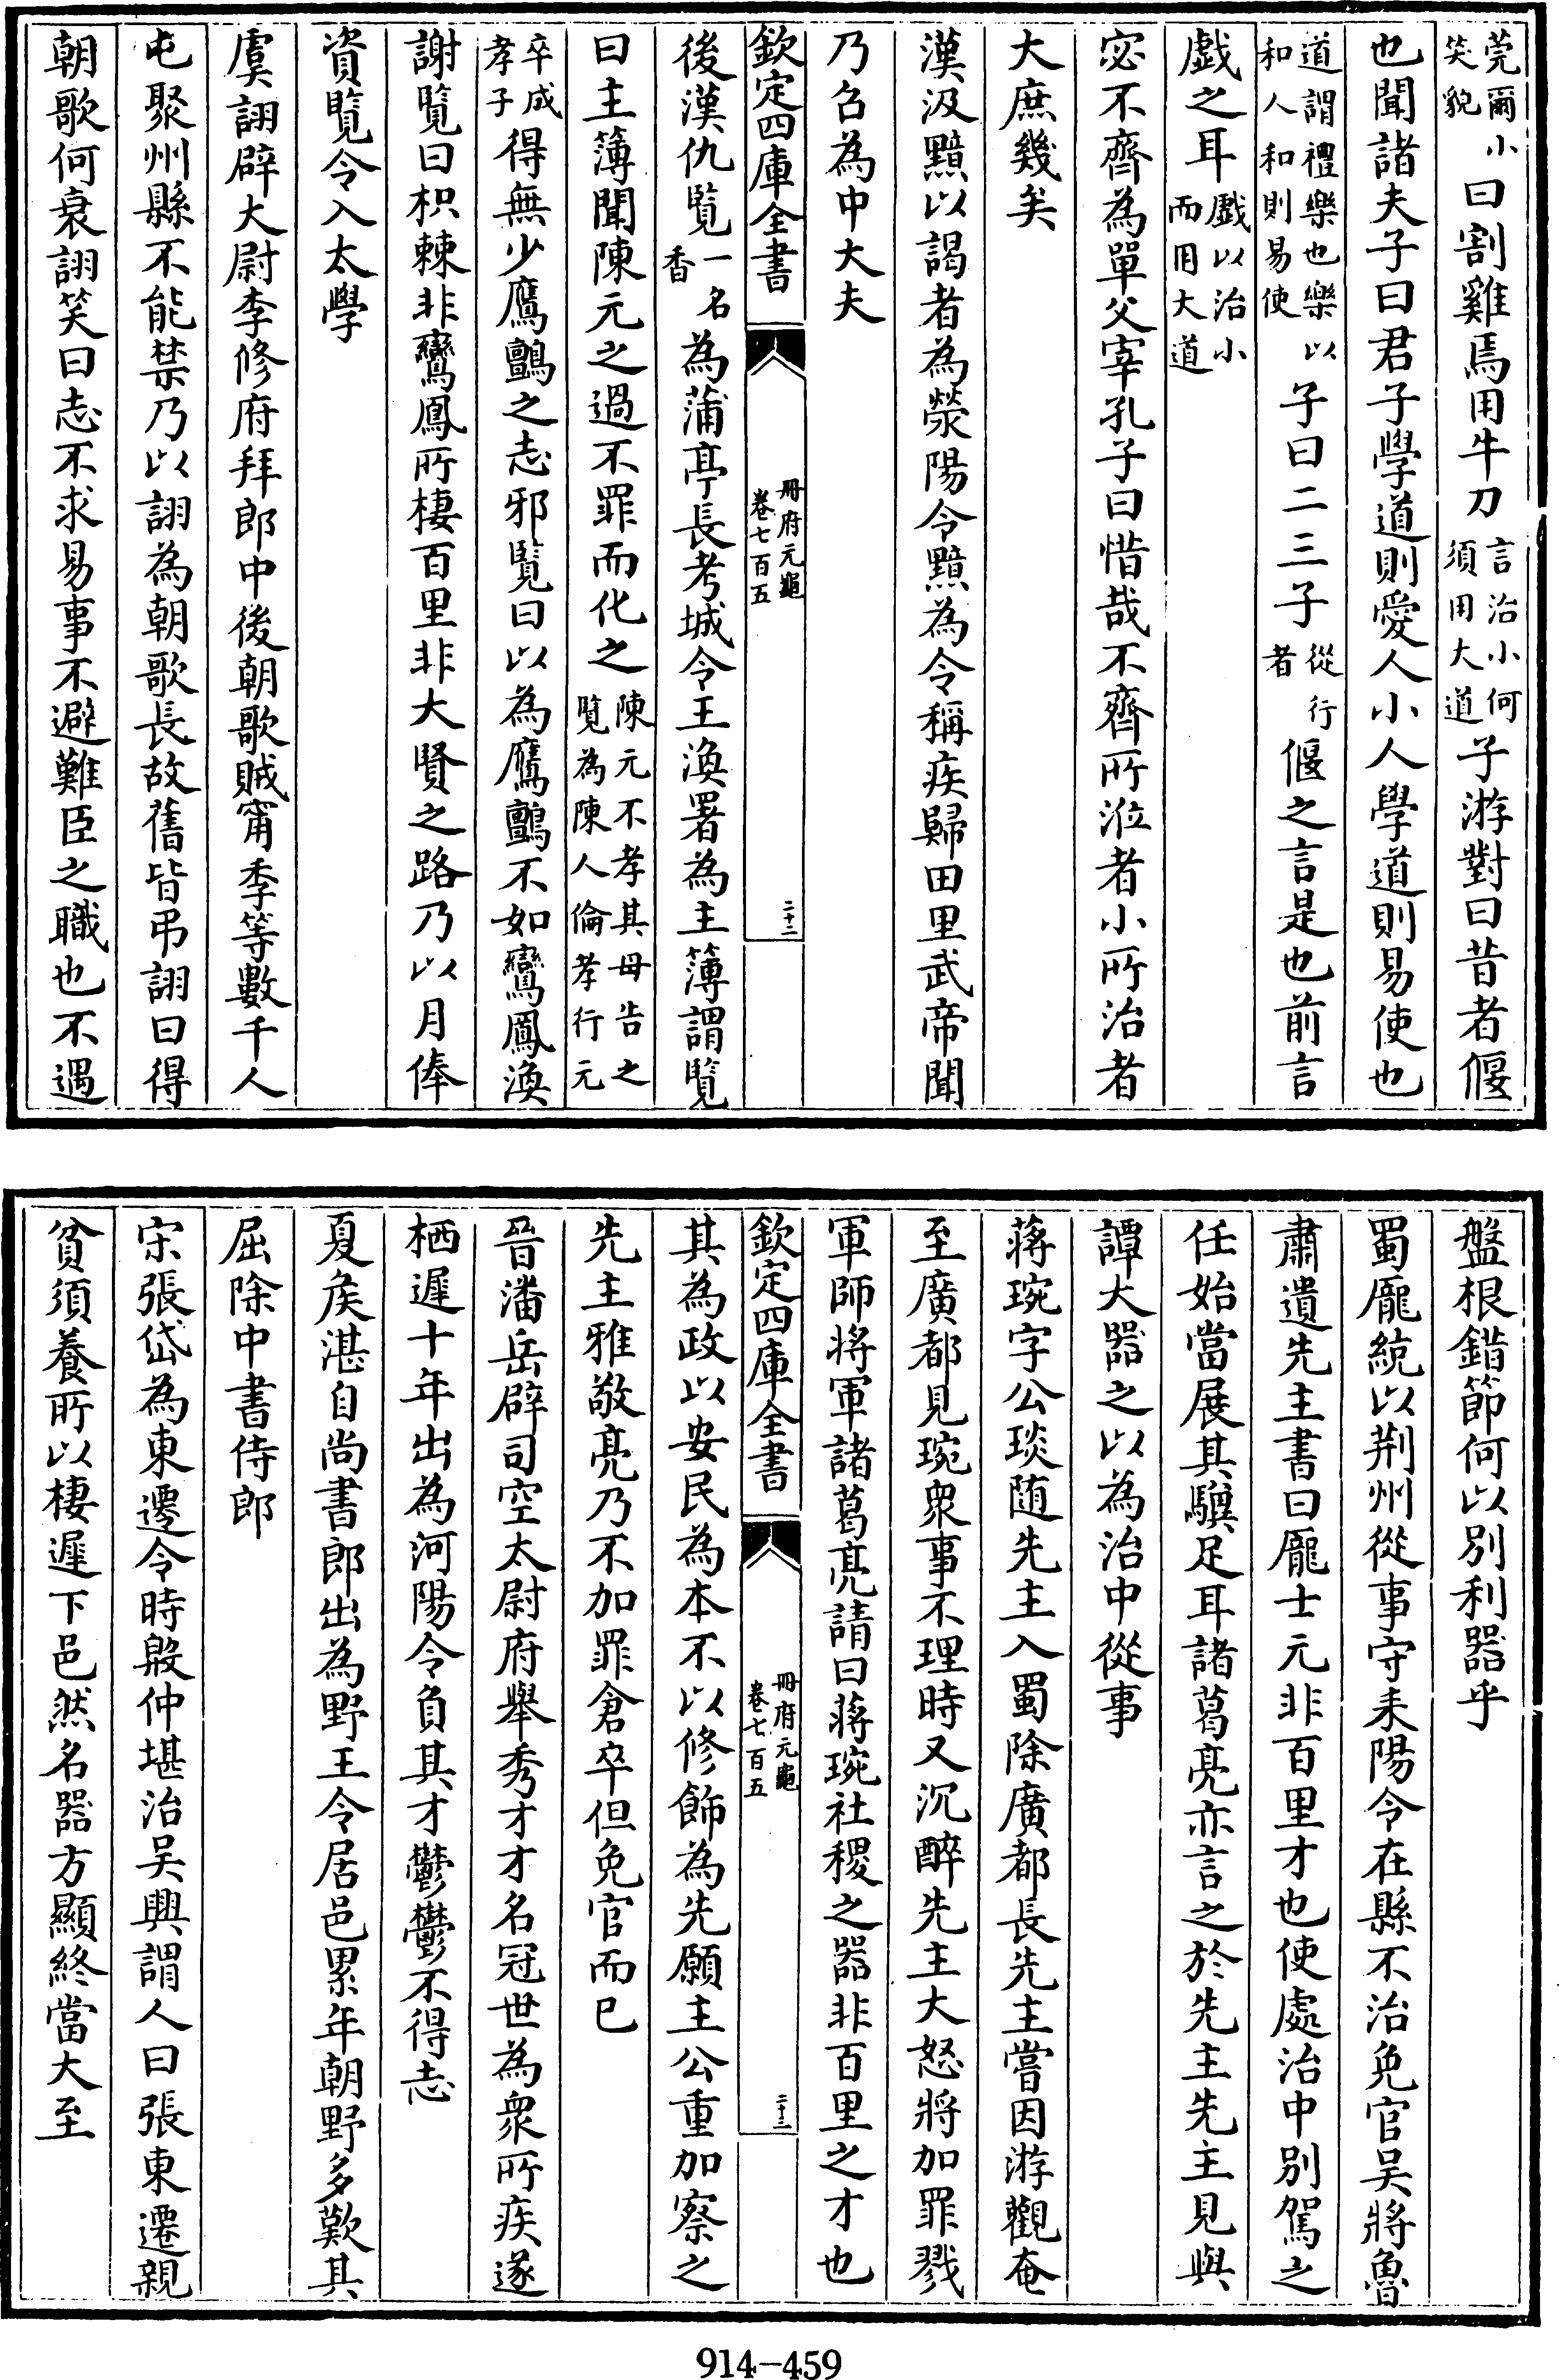 莞爾小笑貌曰割雞焉用牛刀言治小何須用大道子游對曰昔者偃
也聞諸夫子曰君子學道則愛人小人學道則易使也
道謂禮樂也樂以和人人和則易使子曰二三子從行者偃之言是也前言
戲之耳戲以治小而用大道
宓不齊為單父宰孔子曰惜哉不齊所涖者小所治者
大庶幾矣
漢汲黯以謁者為滎陽令黯為令稱疾歸田里武帝聞
乃召為中大夫
欽定四庫全書
冊府元龜
卷七百五
二十二
後漢仇覽一名香為蒲亭長考城令王渙署為主簿謂覽
曰主簿聞陳元之過不罪而化之陳元不孝其母告之覽為陳人倫孝行元
卒成孝子得無少鷹鸇之志邪覽曰以為鷹鸇不如鸞鳳渙
謝覽曰枳棘非鸞鳳所棲百里非大賢之路乃以月俸
資覽令入太學
虞詡辟大尉李修府拜郎中後朝歌賊甯季等數千人
屯聚州縣不能禁乃以詡為朝歌長故舊皆弔詡曰得
朝歌何衰詡笑曰志不求易事不避難臣之職也不遇
盤根錯節何以別利器乎
蜀龐統以荆州從事守耒陽令在縣不治免官吴將魯
肅遺先主書曰龐士元非百里才也使處治中別駕之
任始當展其驥足耳諸葛亮亦言之於先主先主見與
譚大器之以為治中從事
蔣琬字公琰随先主入蜀除廣都長先主嘗因游觀奄
至廣都見琬衆事不理時又沉醉先主大怒將加罪戮
軍師將軍諸葛亮請曰蔣琬社稷之器非百里之才也
欽定四庫全書
冊府元龜
卷七百五
二十三
其為政以安民為本不以修飾為先願主公重加察之
先主雅敬亮乃不加罪倉卒但免官而已
晉潘岳辟司空太尉府舉秀才才名冠世為衆所疾遂
栖遲十年出為河陽令負其才鬱鬱不得志
夏矦湛自尚書郎出為野王令居邑累年朝野多歎其
屈除中書侍郎
宋張岱為東遷令時殷仲堪治吴興謂人曰張東遷親
貧須養所以棲遲下邑然名器方顯終當大至
914-459